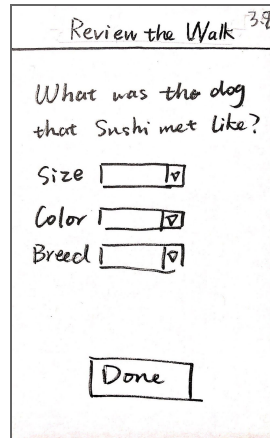 Review the Walk
What was the dog
that Sushi met like?
Size
Color
Breed
Done